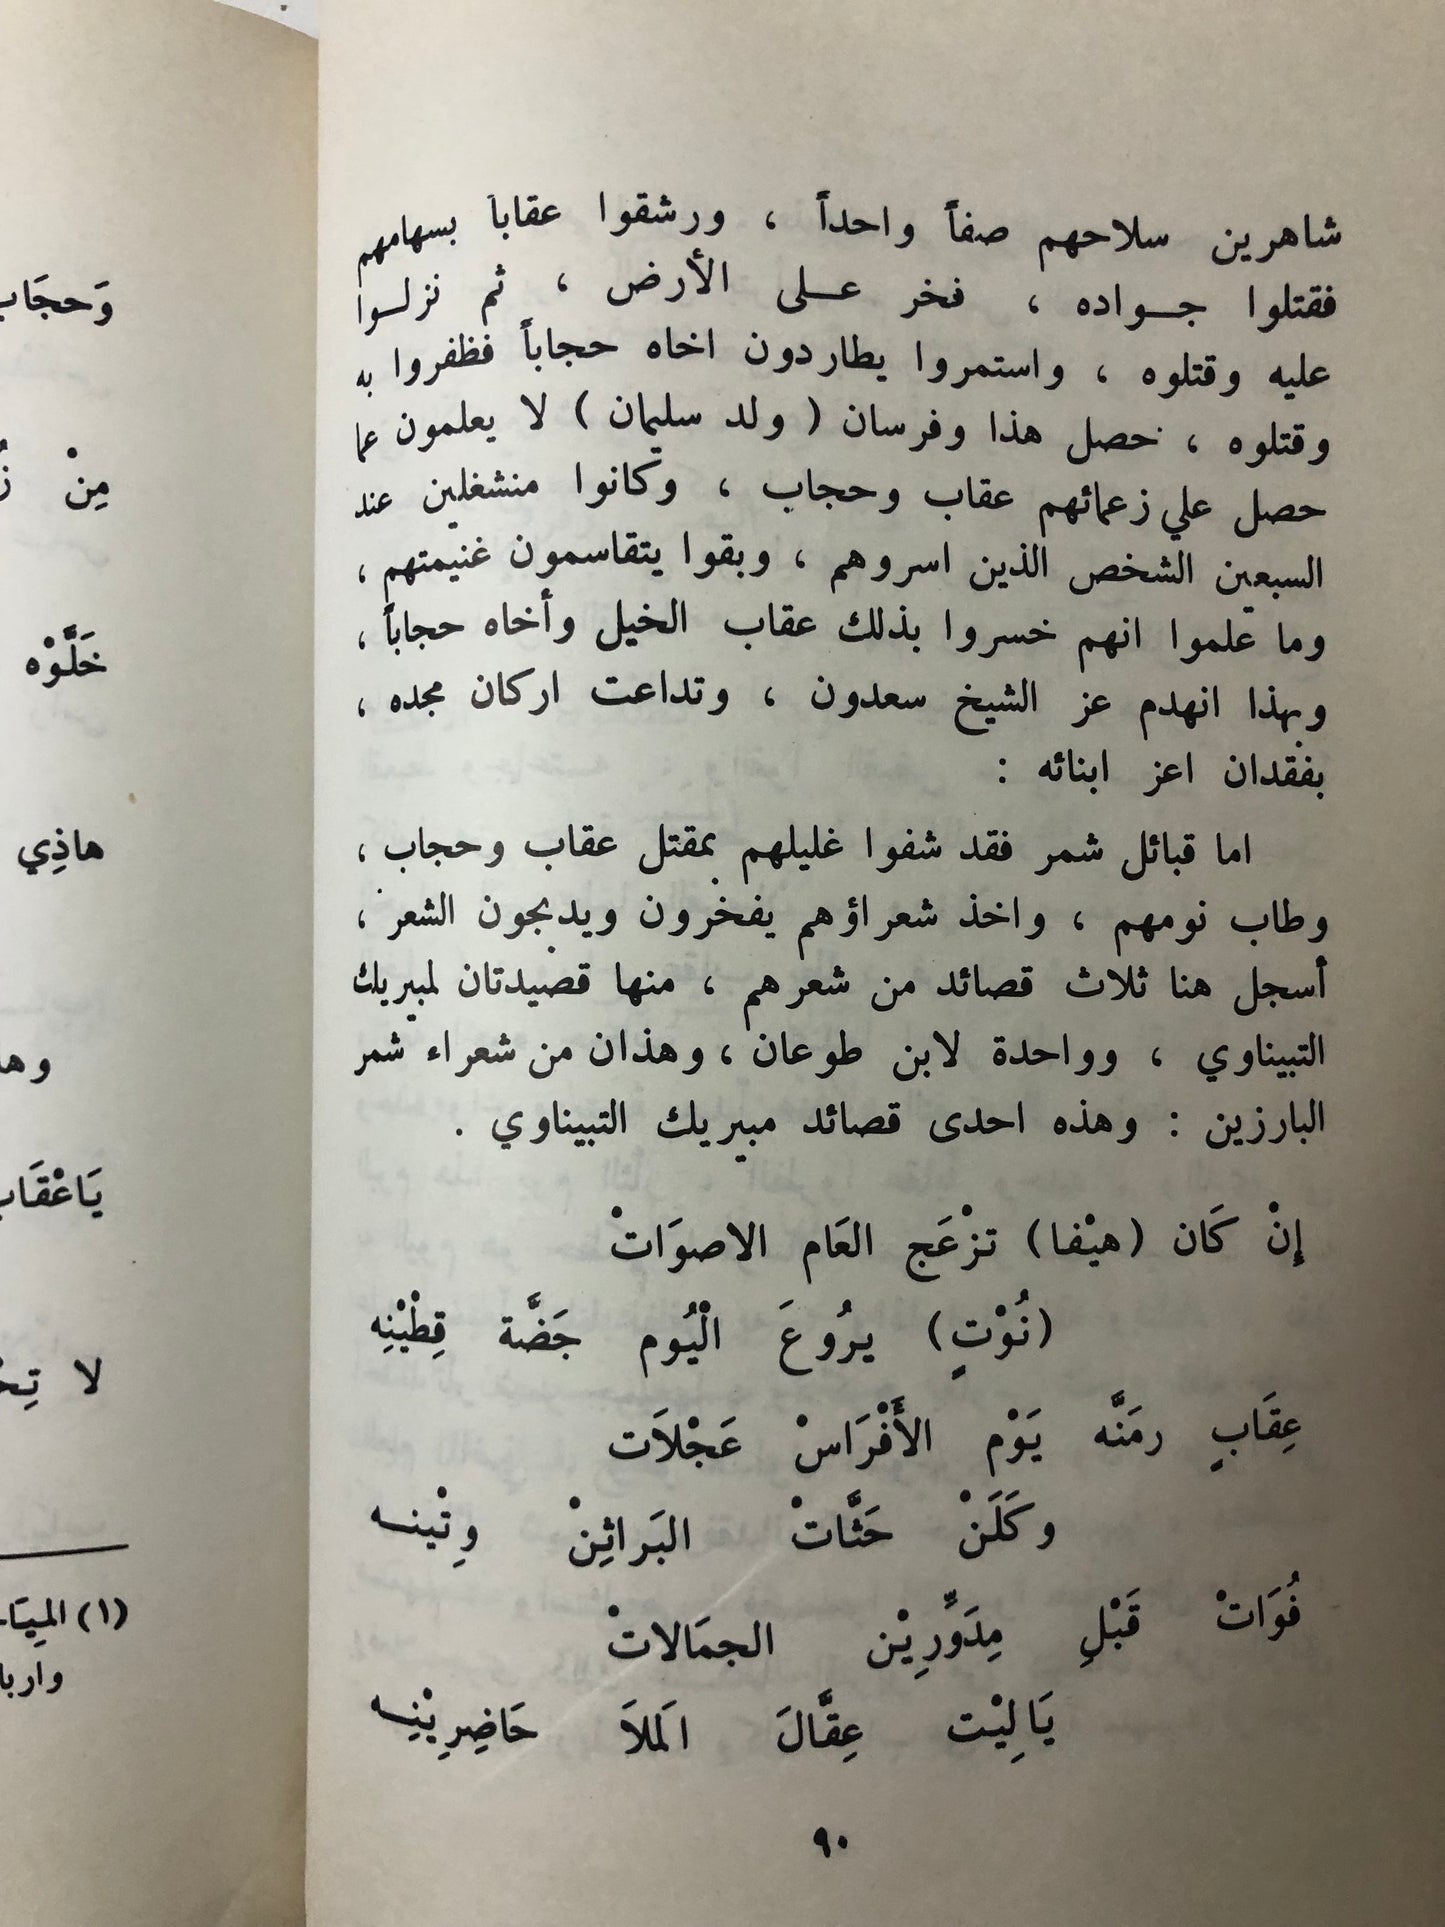 شاهرين سلاحهم صفاً واحداً ، ورشقوا عقاباً بسهامهم
فقتلوا جـواده ، فخر عـلى الأرض ، ثم نزلـوا
عليه وقتلوه ، واستمروا يطاردون اخاه حجاباً فظفروا به
وقتلوه ، حصل هذا وفرسان ( ولد سليمان ) لا يعلمون عما
حصل علي زعمائهم عقاب وحجاب ، وكانوا منشغلين عند
السبعين الشخص الذين اسروهم ، وبقوا يتقاسمون غنيمتهم ،
وما علموا انهم خسروا بذلك عقاب الخيل وأخاه حجاباً ،
وبهذا انهدم عز الشيخ سعدون ، وتداعت اركان مجده ،
بفقدان اعز ابنائه :
اما قبائل شمر فقد شفوا غليلهم بمقتل عقاب وحجاب ،
وطاب نومهم ، واخذ شعراؤهم يفخرون ويدبجون الشعر ،
أسجل هنا ثلاث قصائد من شعرهم ، منها قصيدتان لمبيريك
التبيناوي ، وواحدة لابن طوعان ، وهذان من شعراء شمر
البارزين : وهذه احدى قصائد مبيريك التبيناوي .
إنْ كَان (هيْفا) تزْعَج العَام الاصوَاتْ
(نُوْتٍ) يرُوعَ الْيُوم جَضَّة قِطْيْنِه
عِقَابٍ رمَنَّه يَوْم الأَفْرَاسْ عَجْلاَت
وكَلَنْ حَثَّاتْ البَراثِنْ وِتْينـه
فُوَاتْ قَبْلِ مِدَوِّرِيْن الجمَالاتْ
يَا لِيْت عِقَّالَ المَلاَ حَاضِرِيْنِـه
٩٠
وَحجَاب
مِنْ
خَلَّوْه
هاذِي
يَاعْقَاب
لا
(١)